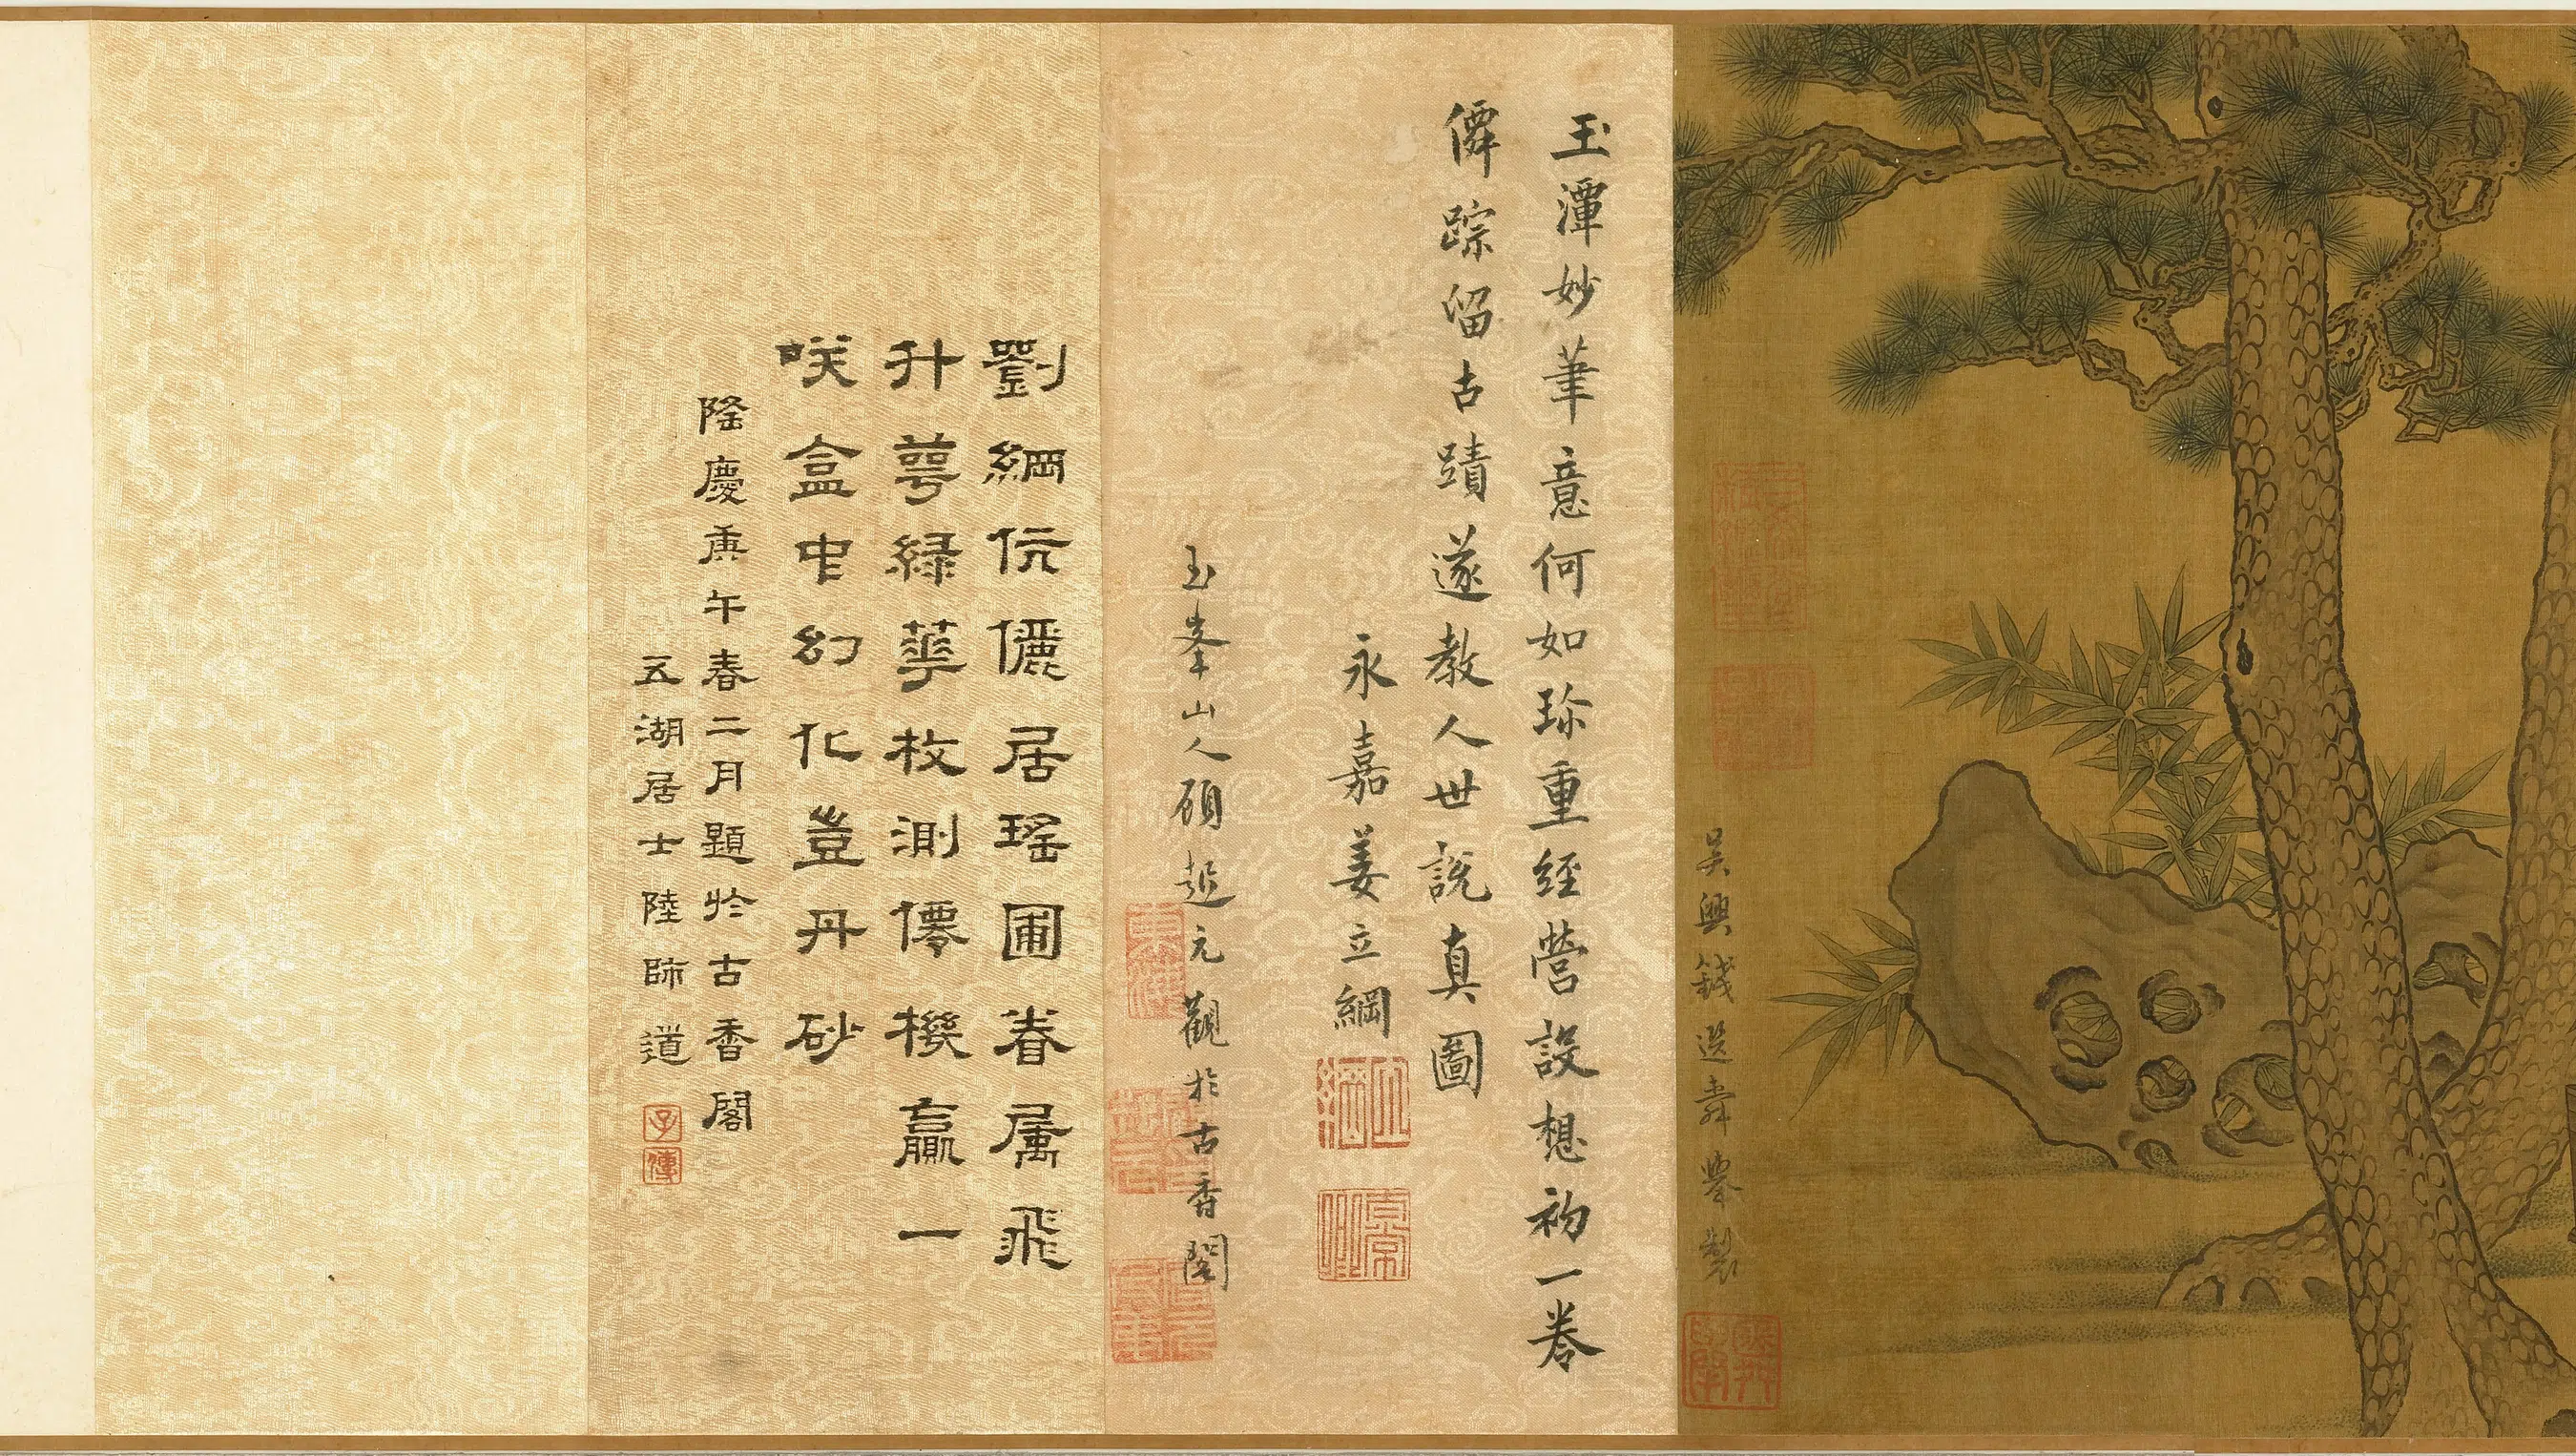 吳興錢選舜舉製
玉潭妙筆意何如珍重經營設想初一卷
僊踪留古蹟遂教人世說真圖
永嘉姜立綱
立綱
玉峯山人顧超元觀於古香閣
劉綱伉儷居瑤圃眷属飛
升萼緑華枚測僊機贏一
咲盒中幻化豈丹砂
隆慶庚午春二月題於古香閣
五湖居士陸師道
子傳